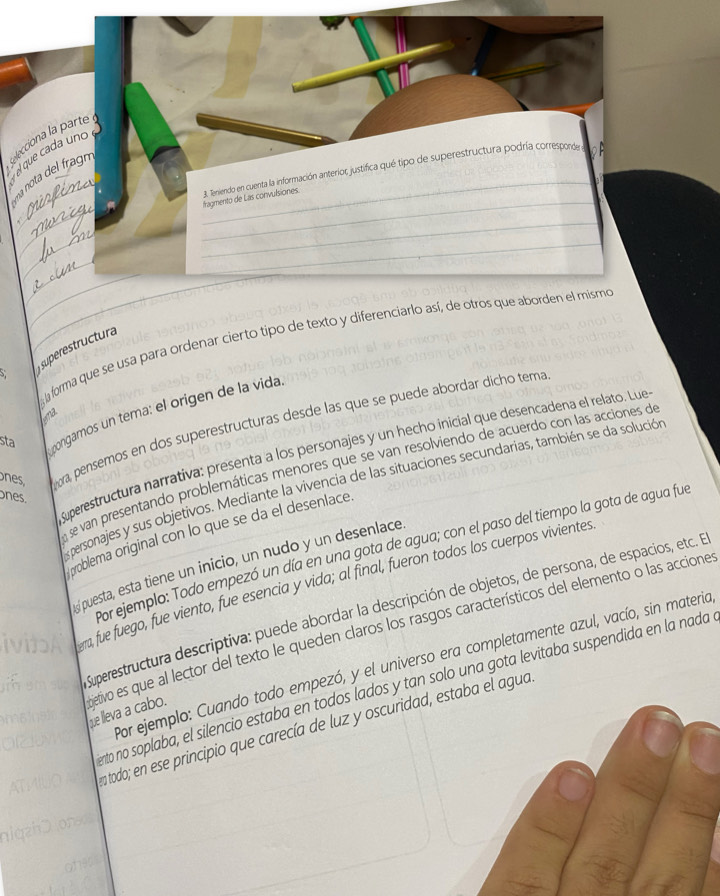 selecciona la parte
el que cada uno
nota del fragm
3. Teniendo en cuenta la información anterior, justifica qué tipo de superestructura podría corresponder
fragmento de Las convulsiones.
superestructura
la forma que se usa para ordenar cierto tipo de texto y diferenciarlo así, de otros que aborden el mismo
pongamos un tema: el origen de la vida.
pensemos en dos superestructuras desde las que se puede abordar dicho tema.
Superestructura narrativa: presenta a los personajes y un hecho inicial que desencadena el relato. Lue-
se van presentando problemáticas menores que se van resolviendo de acuerdo con las acciones de
personajes y sus objetivos. Mediante la vivencia de las situaciones secundarias, también se da solución
problema original con lo que se da el desenlace.
puesta, esta tiene un inicio, un nudo y un desenlace.
Por ejemplo: Todo empezó un día en una gota de agua; con el paso del tiempo la gota de agua fue
fue fuego, fue viento, fue esencia y vida; al final, fueron todos los cuerpos vivientes.
Superestructura descriptiva: puede abordar la descripción de objetos, de persona, de espacios, etc. El
objetivo es que al lector del texto le queden claros los rasgos característicos del elemento o las acciones
que lleva a cabo.
Por ejemplo: Cuando todo empezó, y el universo era completamente azul, vacío, sin materia,
no soplaba, el silencio estaba en todos lados y tan solo una gota levitaba suspendida en la nada q
todo; en ese principio que carecía de luz y oscuridad, estaba el agua.